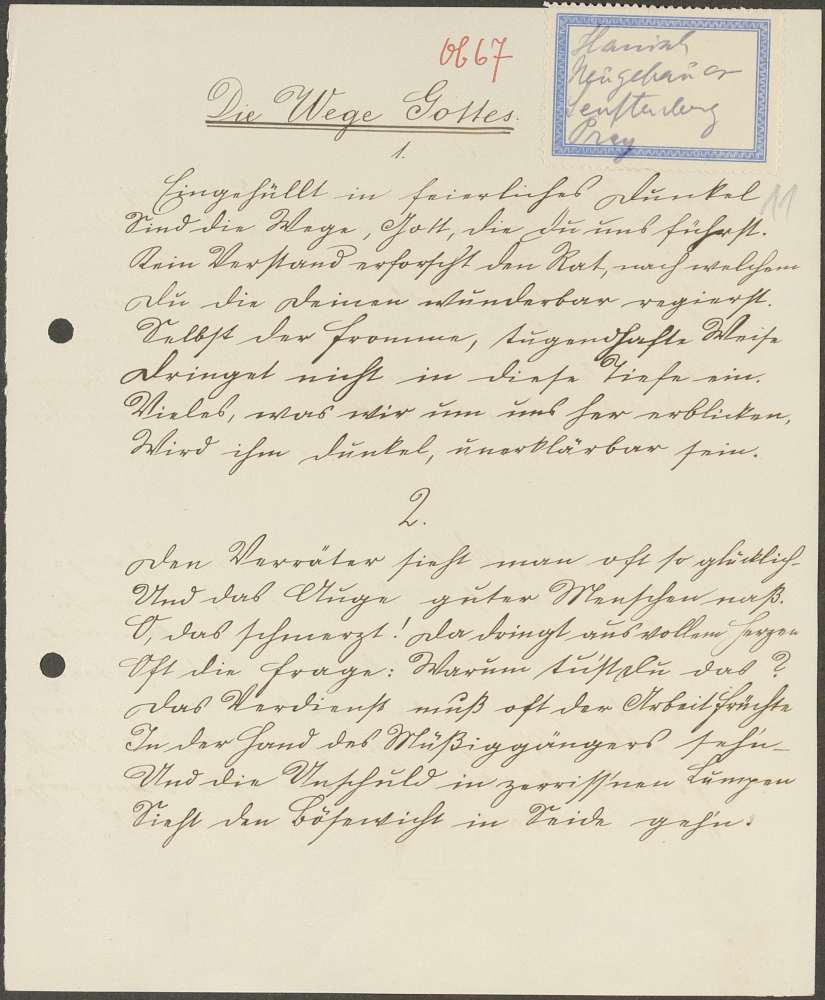 Ob 67
Hanisch
Neugebauer
Senftenberg
Prey
Die Wege Gottes.
1.
11
Eingehüllt in feierliches Dunkel
Sind die Wege, Gott, die du uns führst.
Kein Verstand erforscht den Rat, nach welchem
Du die Deinen wunderbar regierst.
Selbst der fromme, tugendhafte Weise
Dringet nicht in diese Tiefe ein.
Vieles, was wir um uns her erblicken,
Wird ihm dunkel, unerklärbar sein.
2.
Den Verräter sieht man oft so glücklich
Und das Auge guter Menschen naß.
O, das schmerzt! Da dringt aus vollem Herzen
Oft die Frage: Warum tust Du das?
Das Verdienst muß oft der Arbeit Früchte
In der Hand des Müßiggängers seh'n
Und die Unschuld in zerriss'nen Lumpen
Sieht den Bösewicht in Seide geh'n.